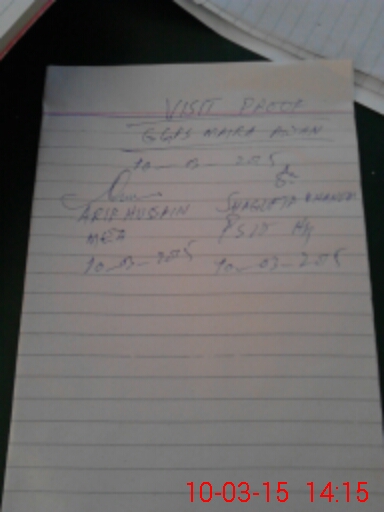 VISIT PROOF
GGPS MAIRA AYAN
10-03-2015
ARIF HUSSAIN
MEA
10-03-2015
SHAGUFTA KHANUM
PST
10-03-2015
10-03-15 14:15